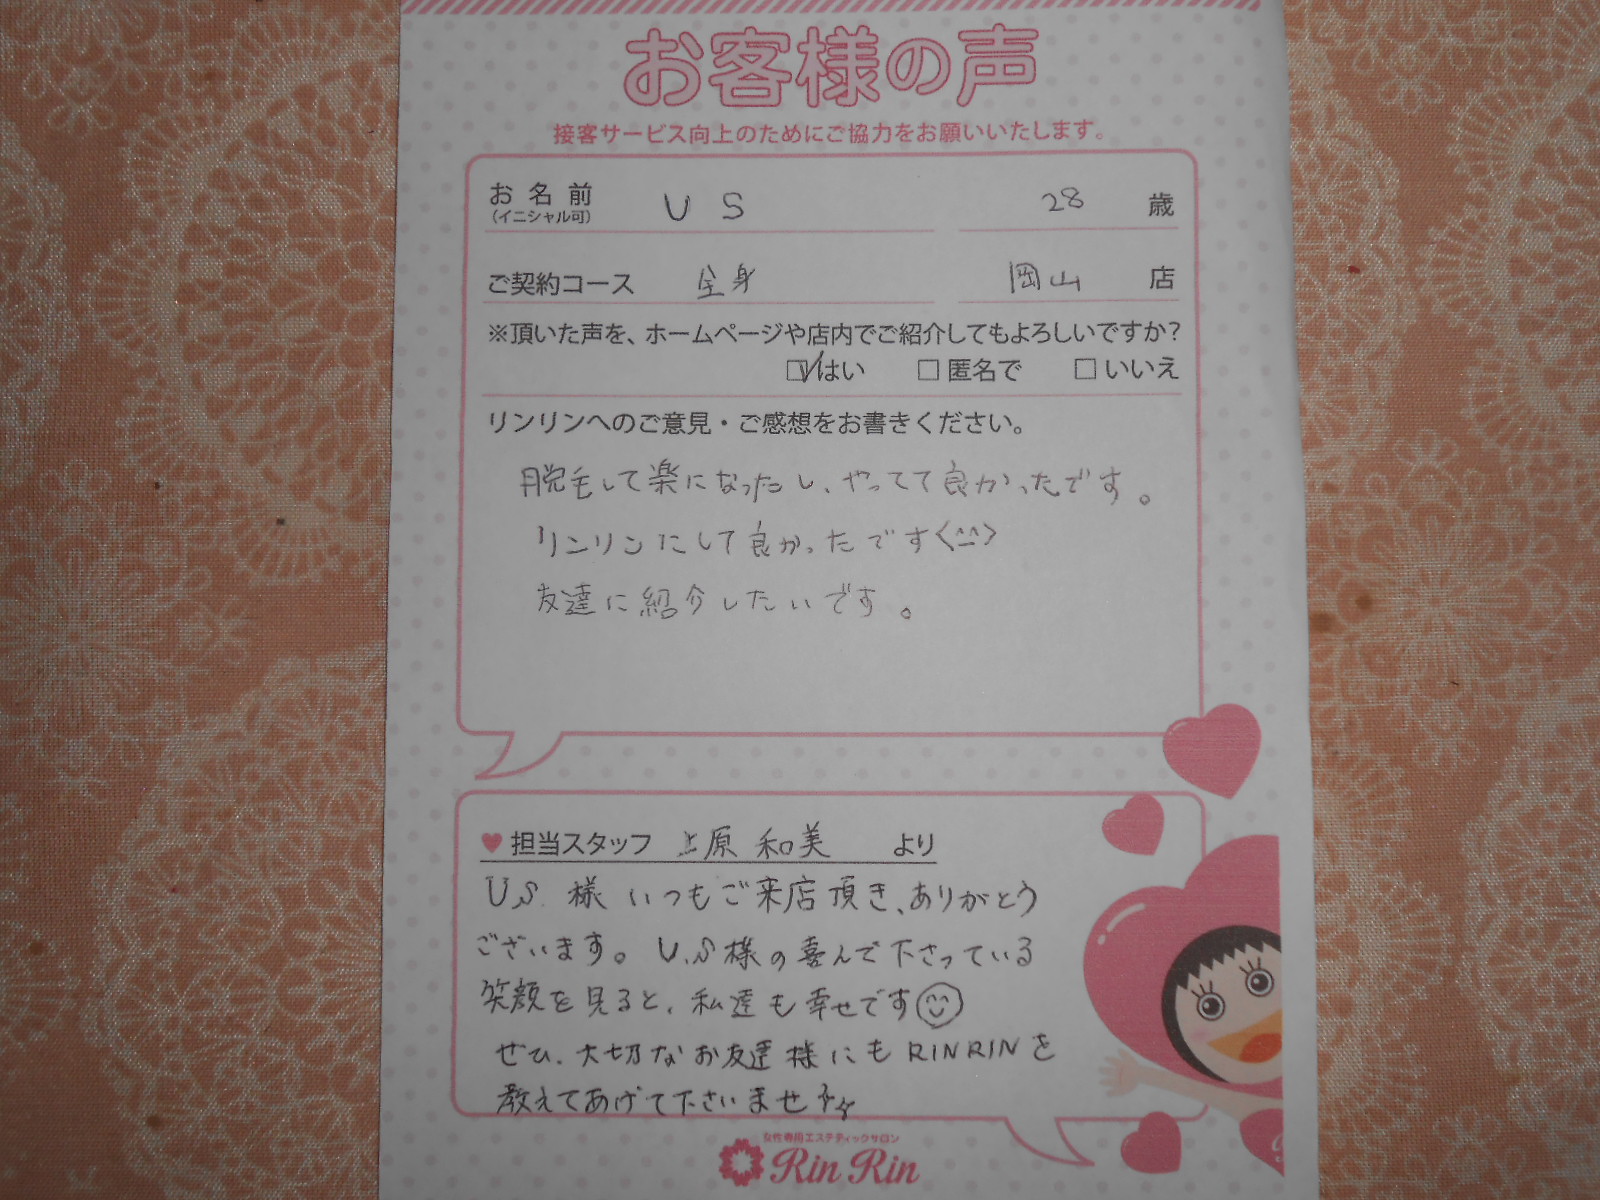 お客様の声
接客サービス向上のためにご協力をお願いいたします。
お名前 U S 28 歳
(イニシャル可)
ご契約コース 全身 岡山 店
※頂いた声を、ホームページや店内でご紹介してもよろしいですか？
☑はい □匿名で □いいえ
リンリンへのご意見・ご感想をお書きください。
脱毛して楽になったし、やってて良かったです。
リンリンにして良かったです<^^>
友達に紹介したいです。
♥担当スタッフ 上原 和美 より
U.S 様 いつもご来店頂き、ありがとう
ございます。U.S様の喜んで下さっている
笑顔を見ると、私達も幸せです☺
ぜひ、大切なお友達様にもRINRINを
教えてあげて下さいませ☆☆
女性専用エステティックサロン
Rin Rin